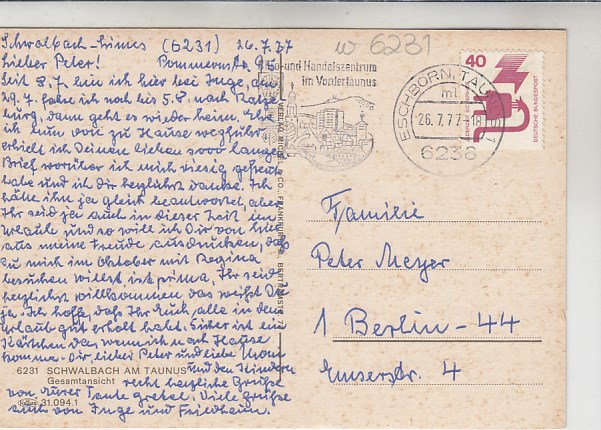 Schwalbach-Limes (6231) 26.7.77
Lieber Peter! Pommernstr. 9
Seit 8.7. bin ich hier bei Inge, am
29.7. fahre ich noch bis 5.8. nach Ratze
burg, dann geht es wieder heim. Ehe
ich nun von zu Hause wegfuhr
erhielt ich Deinen lieben sooo langen
Brief worüber ich mich riesig gefreut
habe und ich Dir herzlichst danke. Ich
hätte ihn ja gleich beantwortet, aber
Ihr seid ja auch in dieser Zeit im
Urlaub und so will ich Dir von hier
aus meine Freude ausdrücken, daß
Du mich im Oktober mit Regina
besuchen willst, ist prima, Ihr seid
herzlichst willkommen das weißt Du
ja. Ich hoffe, daß Ihr Euch alle in dem
Urlaub gut erholt habt. Sicher ist ein
Kärtchen da, wenn ich nach Hause
komme. Dir, lieber Peter und liebe
und den Kindern
recht herzliche Grüße
von Eurer Tante Gretel. Viele Grüße
auch von Inge und Friedhelm.
6231 SCHWALBACH AM TAUNUS
Gesamtansicht
31.094.1
w 6231
und Handelszentrum
im Vordertaunus
ESCHBORN, TAUN
26.7.77-18
6236
40
DEUTSCHE BUNDESPOST
Familie
Peter Meyer
1 Berlin-44
Emserstr. 4